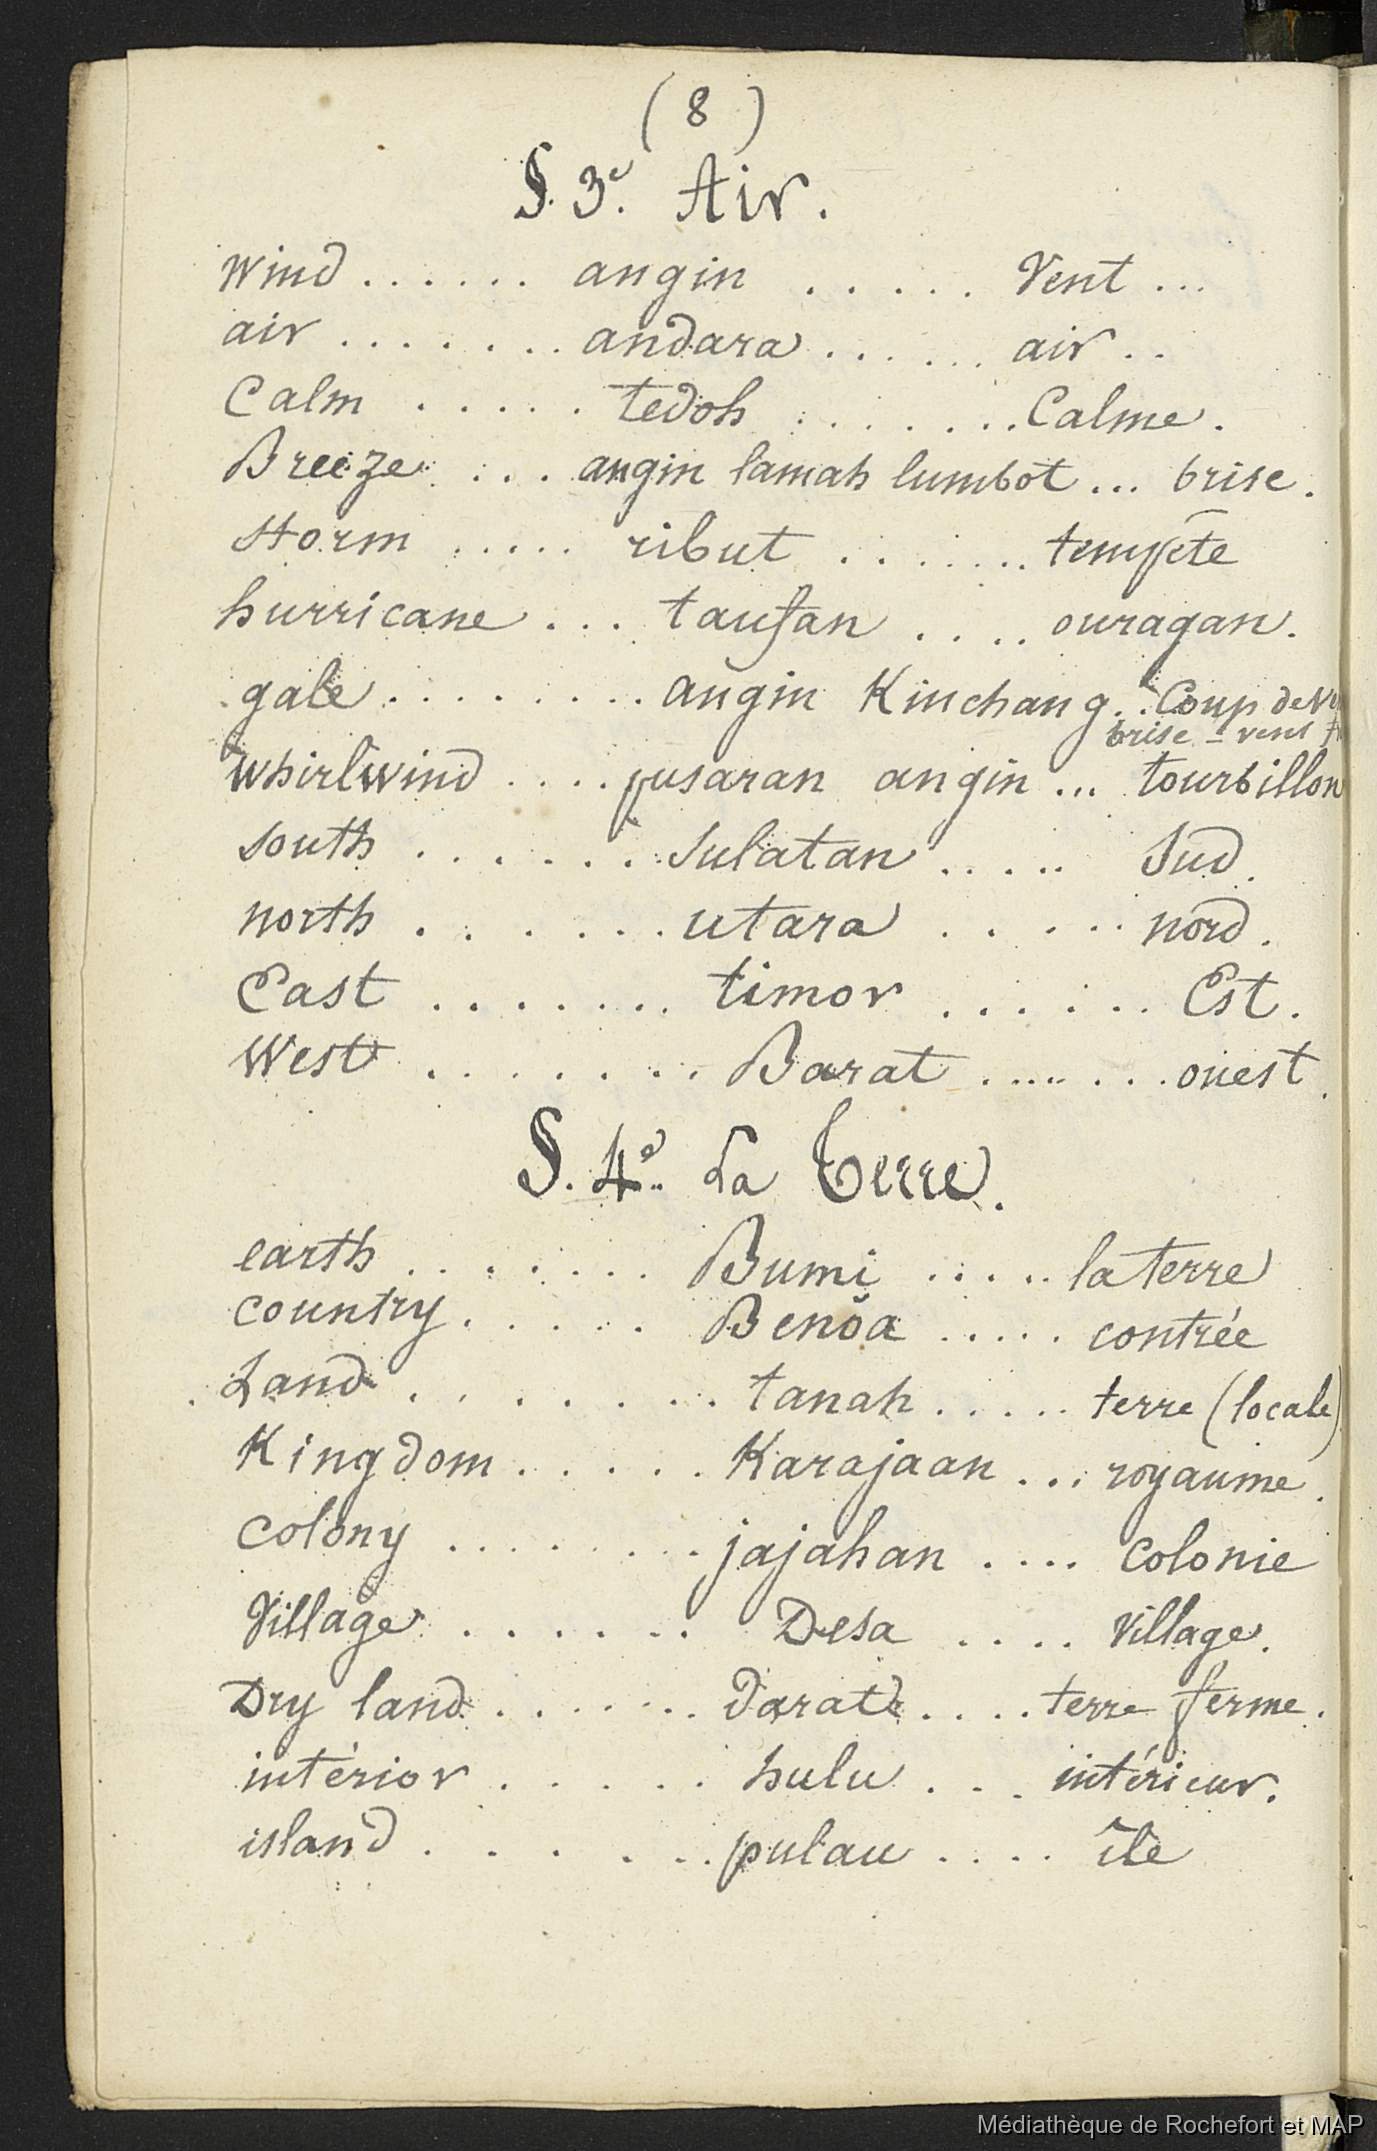 ( 8 )
§. 3e. Air.
Wind ...... angin ..... Vent ...
air ....... andara ...... air ..
Calm ..... tedoh ....... Calme.
Breeze ... angin lamah lumbot ... brise.
storm ..... ribut ....... tempête
hurricane ... taufan .... ouragan.
gale ........ angin Kinchang .. Coup de
brise = vent
Whirlwind .... pusaran angin ... tourbillon
south ...... Sulatan ..... Sud.
north ...... utara ..... nord.
East ....... timor ...... Est.
West ....... Barat ....... ouest.
§. 4e. La Terre.
earth ....... Bumi ..... la terre
country ..... Benŏa ..... contrée
Land ........ tanah ..... terre (locale)
Kingdom ..... Karajaan ... royaume.
Colony ........ jajahan .... Colonie
Village ...... Desa .... Village.
Dry land ...... darat .... terre ferme.
intérior ..... hulu ... intérieur.
island ...... pulau .... île
Médiathèque de Rochefort et MAP